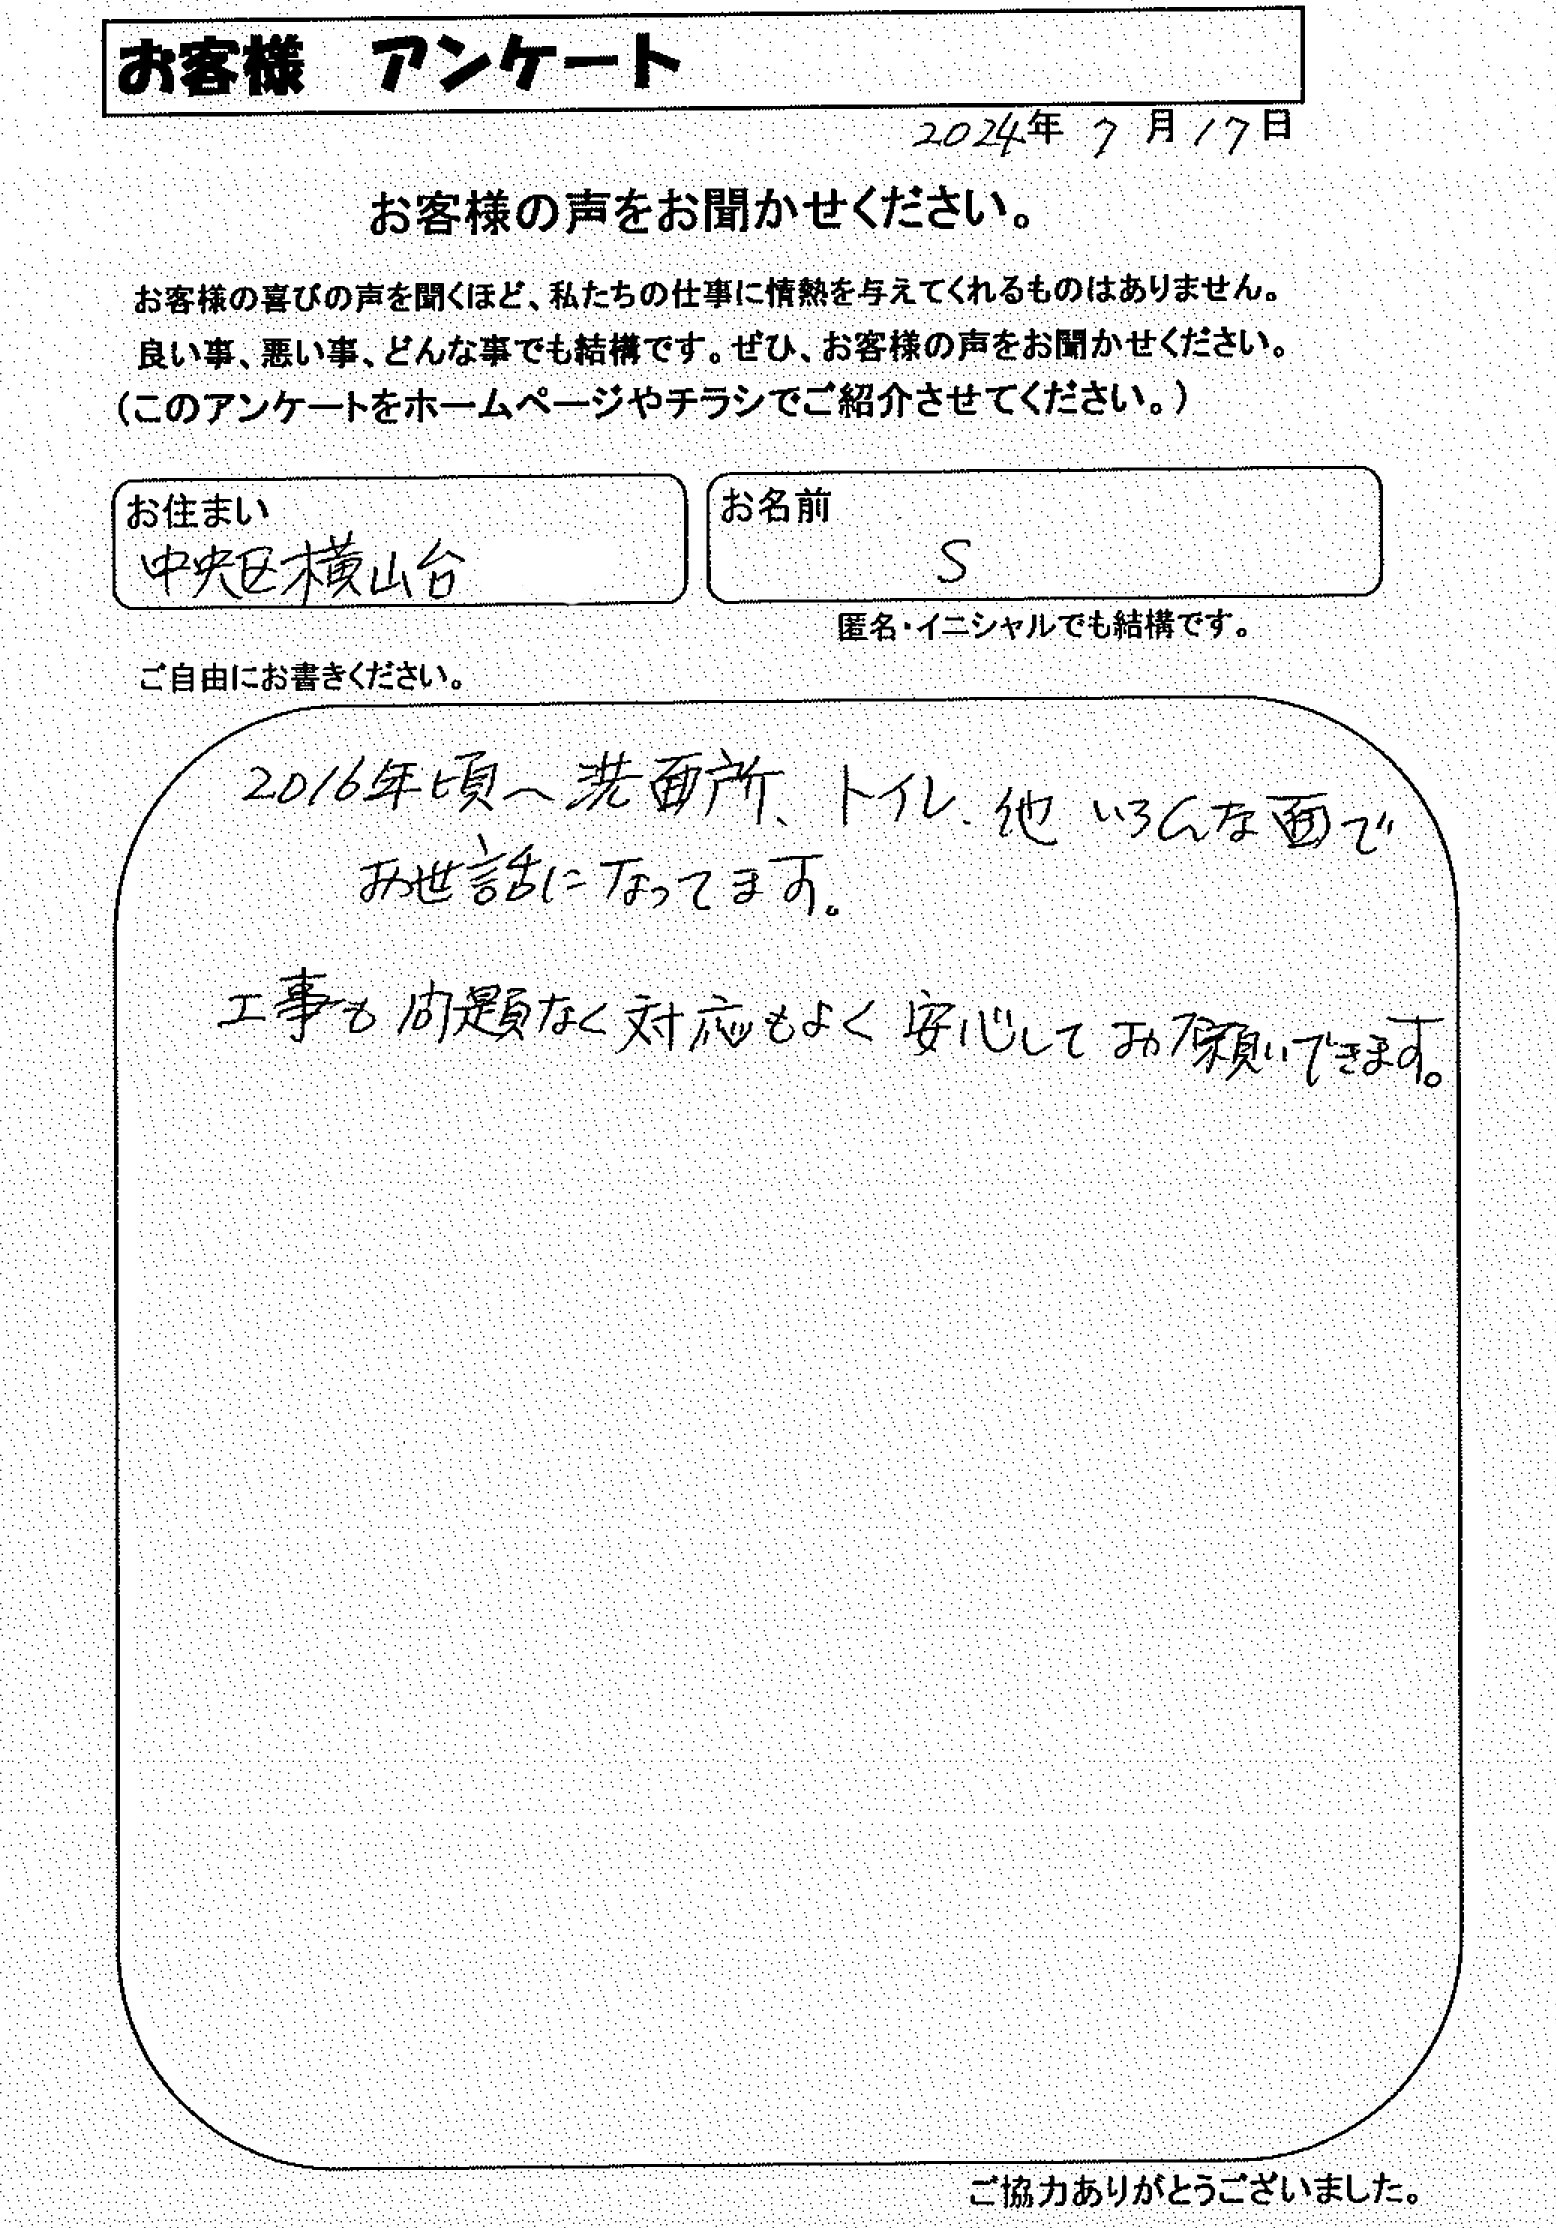 お客様　アンケート
2024年 7月17日
お客様の声をお聞かせください。
お客様の喜びの声を聞くほど、私たちの仕事に情熱を与えてくれるものはありません。
良い事、悪い事、どんな事でも結構です。ぜひ、お客様の声をお聞かせください。
（このアンケートをホームページやチラシでご紹介させてください。）
お住まい
中央区横山台
お名前
S
匿名・イニシャルでも結構です。
ご自由にお書きください。
2016年頃〜洗面所、トイレ、他 いろんな面で
お世話になってます。
工事も問題なく対応もよく安心してお願いできます。
ご協力ありがとうございました。